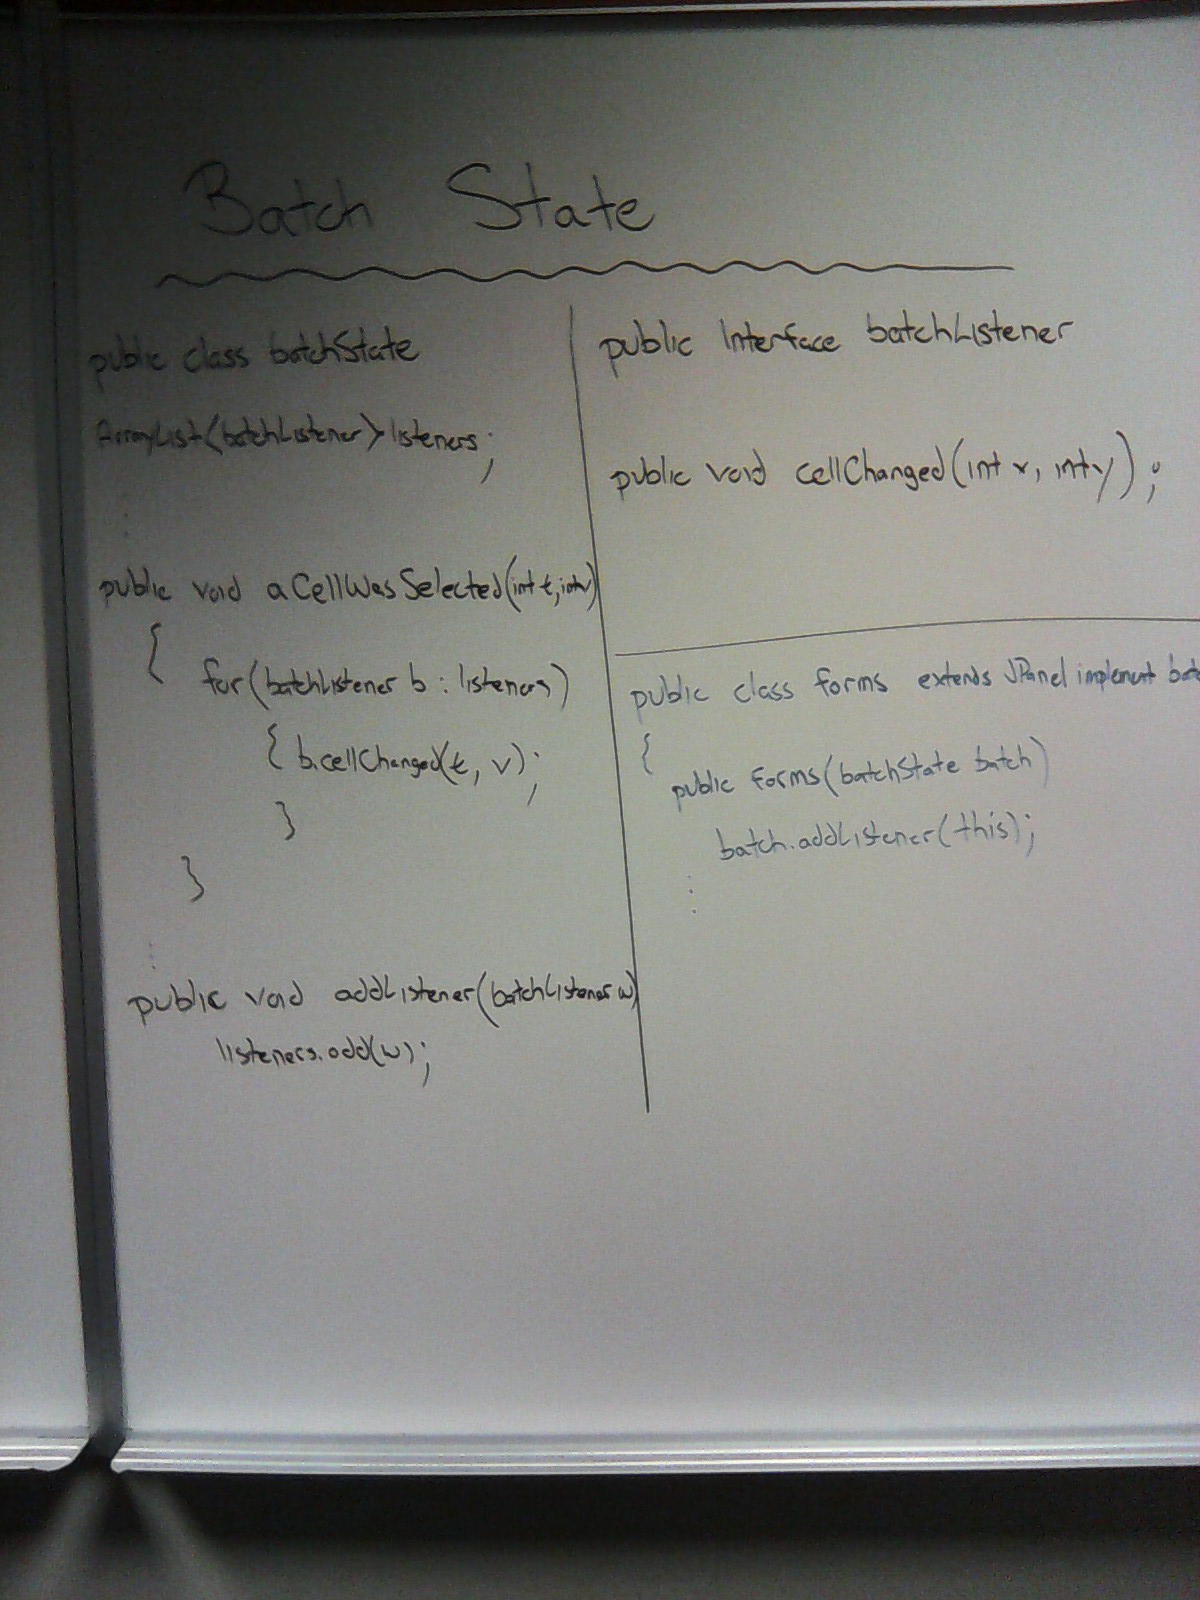 Batch State
public class batchState
ArrayList<batchListener> listeners;
public void aCellWasSelected(int t, int v)
{
for(batchListener b : listeners)
{ b.cellChanged(t, v);
}
}
public void addListener(batchListener w)
listeners.add(w);
public Interface batchListener
public void cellChanged(int x, int y);
public class forms extends JPanel implement batc
{
public forms(batchState batch)
batch.addListener(this);